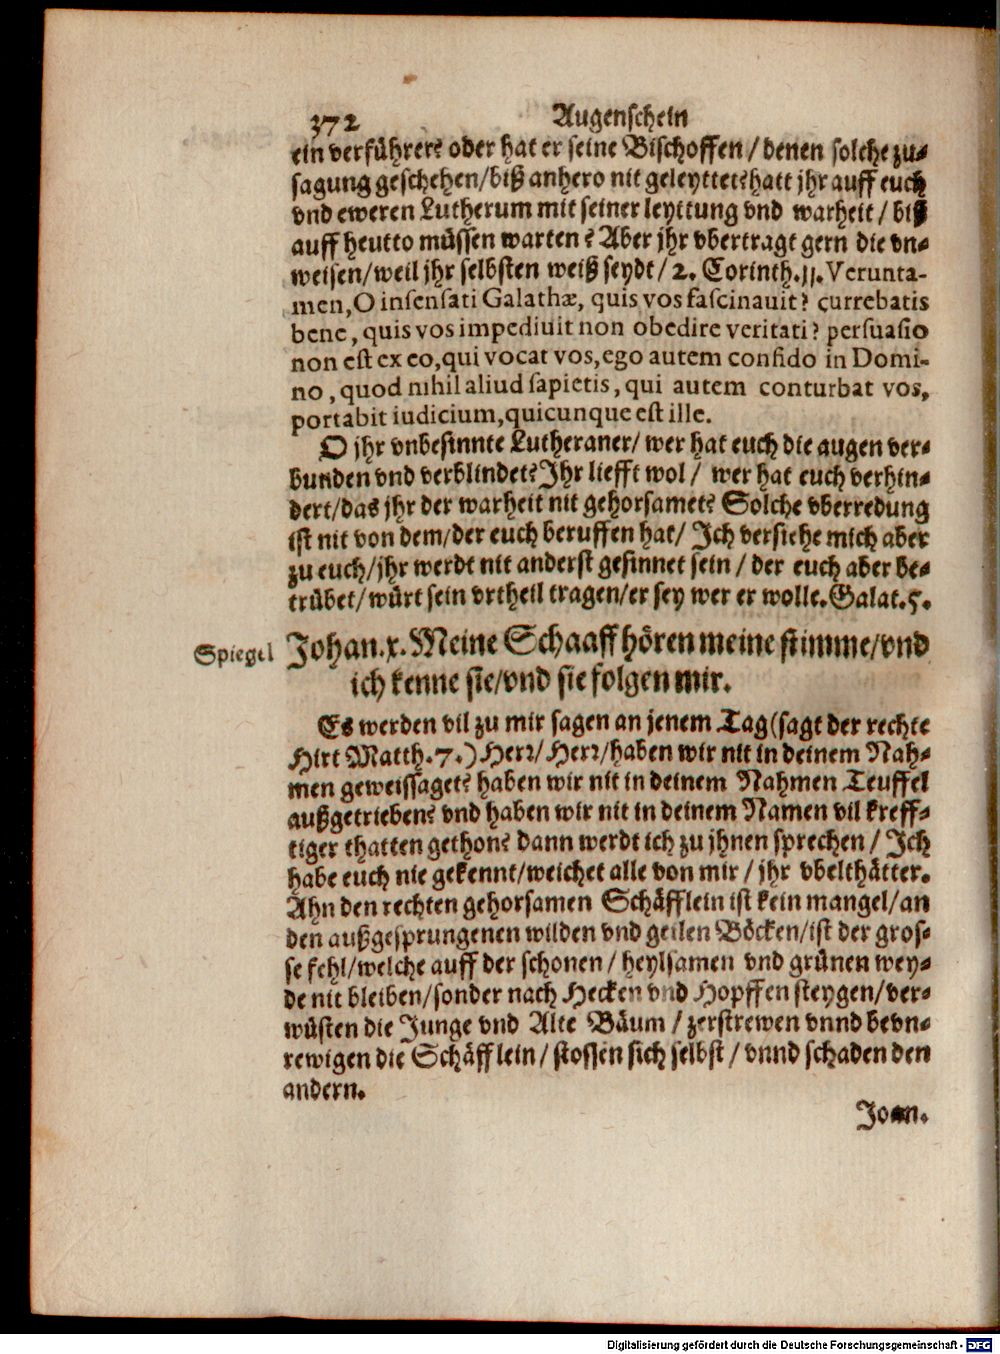 372 Augenschein
ein verführer? oder hat er seine Bischoffen / denen solche zu-
sagung geschehen/biß anhero nit geleyttet? hatt jhr auff euch
vnd eweren Lutherum mit seiner leyttung vnd warheit / biß
auff heutto müssen warten? Aber jhr vbertragt gern die vn-
weisen/weil jhr selbsten weiß seydt / 2. Corinth. 11. Verunta-
men, O insensati Galathæ, quis vos fascinavit? currebatis
bene, quis vos impediuit non obedire veritati? persuasio
non est ex eo, qui vocat vos, ego autem confido in Domi-
no, quod nihil aliud sapietis, qui autem conturbat vos,
portabit iudicium, quicunque est ille.
O jhr vnbesinnte Lutheraner/ wer hat euch die augen ver-
bunden vnd verblindet? Jhr liefft wol / wer hat euch verhin-
dert/das jhr der warheit nit gehorsamet? Solche vberredung
ist nit von dem/der euch beruffen hat/ Jch versiehe mich aber
zu euch/jhr werdt nit anderst gesinnet sein / der euch aber be-
trübet/würt sein vrtheil tragen/er sey wer er wolle. Galat. 5.
Spiegel Johan. x. Meine Schaaff hören meine stimme/vnd
ich kenne sie/vnd sie folgen mir.
Es werden vil zu mir sagen an jenem Tag (sagt der rechte
Hirt Matth. 7.) Herr/ Herr/haben wir nit in deinem Nah-
men geweissaget? haben wir nit in deinem Nahmen Teuffel
außgetrieben? vnd haben wir nit in deinem Namen vil kreff-
tiger thatten gethon? dann werdt ich zu jhnen sprechen / Jch
habe euch nie gekennt/weichet alle von mir / jhr vbelthätter.
Ahn den rechten gehorsamen Schäfflein ist kein mangel/an
den außgesprungenen wilden vnd geilen Böcken/ist der gros-
se fehl/welche auff der schonen / heylsamen vnd grünen wey-
de nit bleiben/sonder nach Hecken vnd Hopffen steygen/ver-
wüsten die Junge vnd Alte Bäum / zerstrewen vnnd bevn-
rewigen die Schäfflein / stossen sich selbst / vnnd schaden den
andern.
Joan.
Digitalisierung gefördert durch die Deutsche Forschungsgemeinschaft - DFG